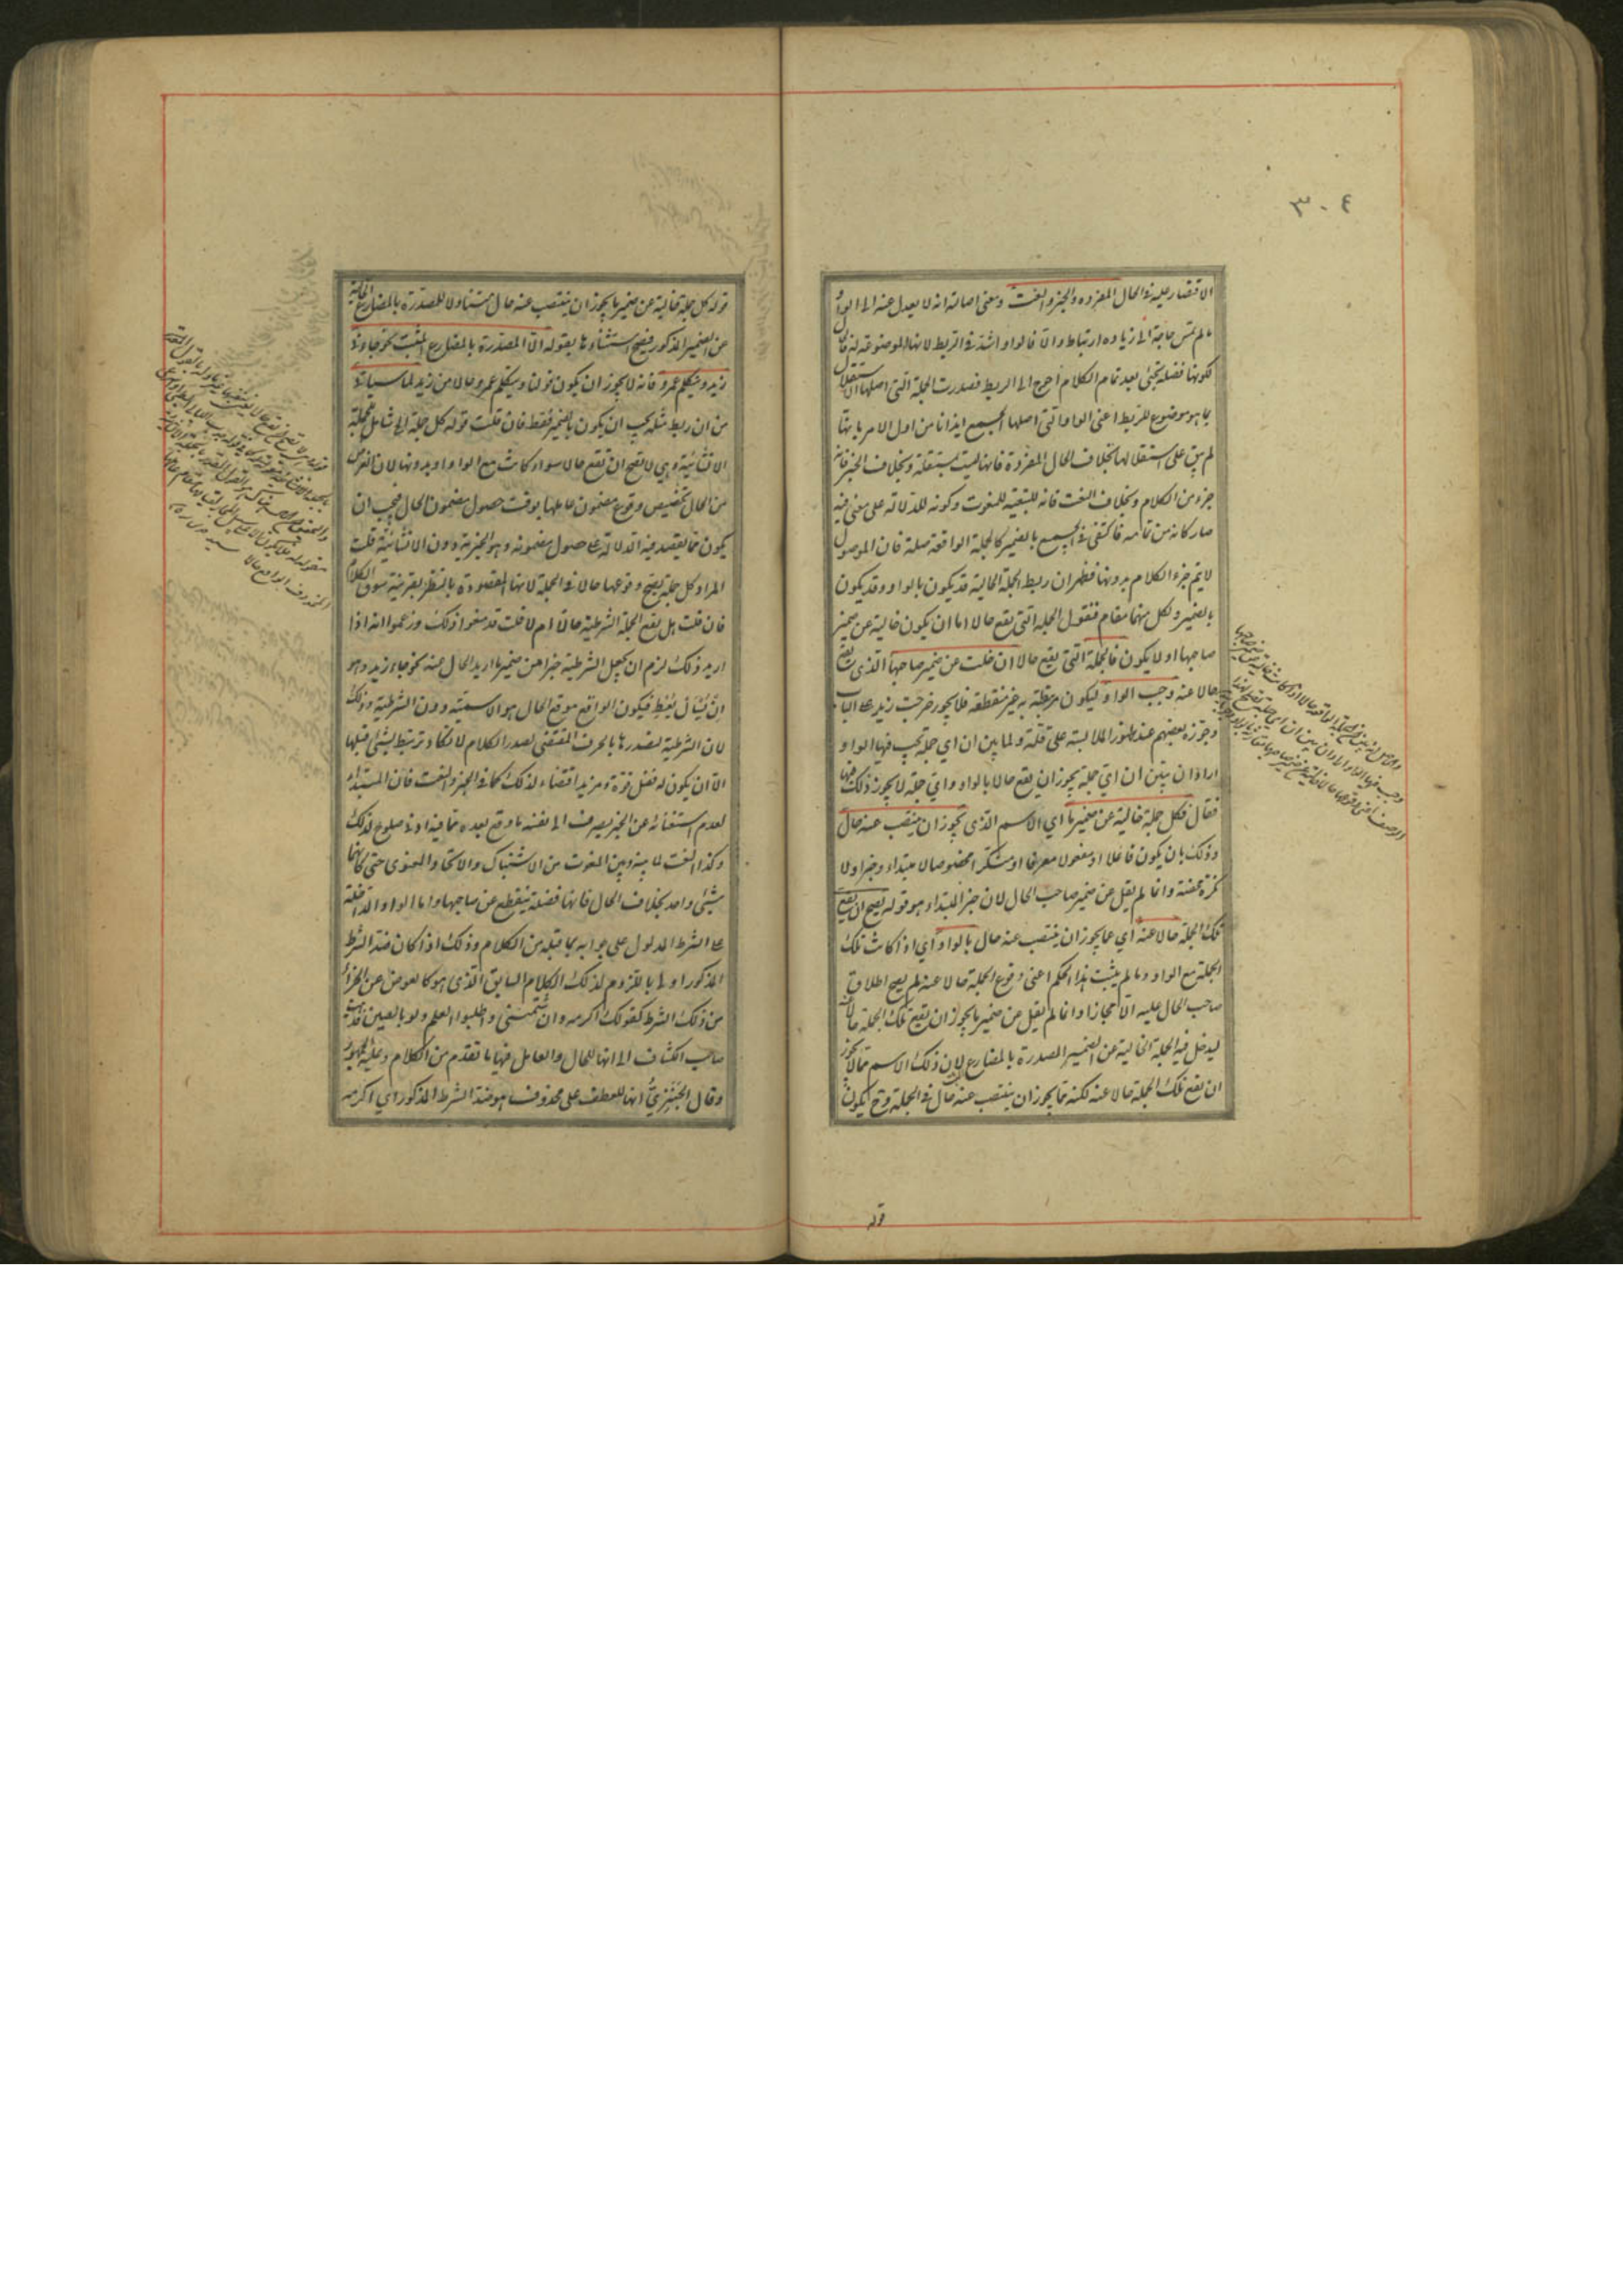 ٣٠٤
الاقتصار عليه في الحال المفردة والخبر والنعت ومعنى اصالته انه لا يعدل عنه الى الواو
ما لم تمس حاجة الى زيادة ارتباط والا فالواو اشد في الربط لانها الموضوعة له فالحال
لكونها فضلة تجئ بعد تمام الكلام احوج الى الربط فصدرت الجملة التي اصلها الاستقلال
بما هو موضوع للربط اعني الواو التي اصلها الجمع ايذانا من اول الامر بانها
لم تبق على استقلالها بخلاف الحال المفردة فانها ليست بمستقلة وبخلاف الخبر فانه
جزء من الكلام وبخلاف النعت فانه لتبعيته للمنعوت وكونه للدلالة على معنى فيه
صار كانه من تمامه فاكتفى في الجميع بالضمير كالجملة الواقعة صلة فان الموصول
لا يتم جزء الكلام بدونها فظهر ان ربط الجملة الحالية قد يكون بالواو وقد يكون
بالضمير ولكل منهما مقام فنقول الجملة التي تقع حالا اما ان يكون خالية عن ضمير
صاحبها او لا يكون فالجملة التي تقع حالا ان خلت عن ضمير صاحبها الذي تقع
حالا عنه وجب الواو ليكون مرتبطة به غير منقطعة فلا يجوز خرجت زيد على الباب
وجوزه بعضهم عند ظهور الملابسة على قلة ولما بين ان اي جملة تجب فيها الواو
اراد ان يبين ان اي جملة يجوز ان يقع حالا بالواو واي جملة لا يجوز ذلك فيها
فقال فكل جملة خالية عن ضمير ما اي الاسم الذي يجوز ان ينتصب عنه حال
وذلك بان يكون فاعلا او مفعولا معرفا او منكرا مخصوصا لا مبتداء وخبرا ولا
نكرة محضة وانما لم يقل عن ضمير صاحب الحال لان خبر المبتداء هو قوله يصح ان يقع
تلك الجملة حالا عنه اي عما يجوز ان ينتصب عنه حال بالواو اي اذا كانت تلك
الجملة مع الواو وما لم يثبت هذا الحكم اعني وقوع الجملة حالا عنه لم يصح اطلاق
صاحب الحال عليه الا مجازا وانما لم يقل عن ضمير ما يجوز ان يقع تلك الجملة حالا عنه
ليدخل فيه الجملة الخالية عن الضمير المصدرة بالمضارع لان ذلك الاسم مما لا يجوز
ان يقع تلك الجملة حالا عنه لكنه مما يجوز ان ينتصب عنه حال في الجملة وح يكون
قوله
قوله كل جملة خالية عن ضمير ما يجوز ان ينتصب عنه حال متناولا للمصدرة بالمضارع الخالية
عن الضمير المذكور فيصح استثناؤها بقوله الا المصدرة بالمضارع المثبت نحو جاءني
زيد ويتكلم عمرو فانه لا يجوز ان يكون قولنا ويتكلم عمرو حالا من زيد لما سيأتي
من ان ربط مثله يجب ان يكون بالضمير فقط فان قلت قوله كل جملة الى شامل للجملة
الانشائية وهي لا يصح ان تقع حالا سواء كانت مع الواو او بدونها لان الغرض
من الحال تخصيص وقوع مضمون عاملها بوقت حصول مضمون الحال فيجب ان
يكون مما يقصد فيه الدلالة على حصول مضمونه وهو الخبرية دون الانشائية قلت
المراد كل جملة يصح وقوعها حالا في الجملة لانها المقصودة بالنظر بقرينة سوق الكلام
فان قلت هل يقع الجملة الشرطية حالا ام لا قلت قد منعوا ذلك وزعموا انه اذا
اريد ذلك لزم ان يجعل الشرطية خبرا عن ضمير ما اريد الحال عنه نحو جاء زيد وهو
ان يُسْأل يُعْطِ فيكون الواقع موقع الحال هو الاسمية دون الشرطية وذلك
لان الشرطية لتصدرها بالحرف المقتضي لصدر الكلام لا تكاد ترتبط بشئ قبلها
الا ان يكون له فضل قوة ومزيد اقتضاء لذلك كما في الخبر والنعت فان المبتداء
لعدم استغنائه عن الخبر يصرف الى نفسه ما وقع بعده مما فيه ادنى صلوح لذلك
وكذا النعت لما بينه وبين المنعوت من الاشتباك والاتحاد المعنوى حتى كانهما
شئ واحد بخلاف الحال فانها فضلة تنقطع عن صاحبها واما الواو الداخلة
على الشرط المدلول على جوابه بما قبله من الكلام وذلك اذا كان ضد الشرط
المذكور اولى باللزوم لذلك الكلام السابق الذي هو كالعوض عن الجزاء
من ذلك الشرط كقولك اكرمه وان شتمني واطلبوا العلم ولو بالصين فذهب
صاحب الكشاف الى انها للحال والعامل فيها ما تقدم من الكلام وعليه الجمهور
وقال الجَنْزِيُّ انها للعطف على محذوف هو ضد الشرط المذكور اي اكرمه